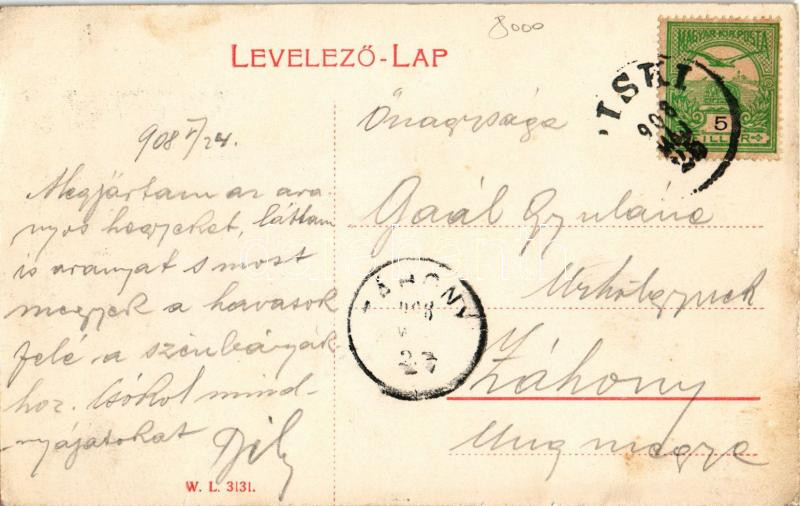 8000
LEVELEZŐ-LAP
908 V/24.
Megjártam az ara-
nyos hegyeket, láttam
is aranyat s most
megyek a havasok
felé a szénbányák-
hoz. Csókol mind-
nyájatokat
W. L. 3131.
MAGYAR KIR. POSTA
5
FILLÉR
PISKI
908
Önagysága
Gaál Gyuláné
Záhony
Ung megye
ZÁHONY
908
27